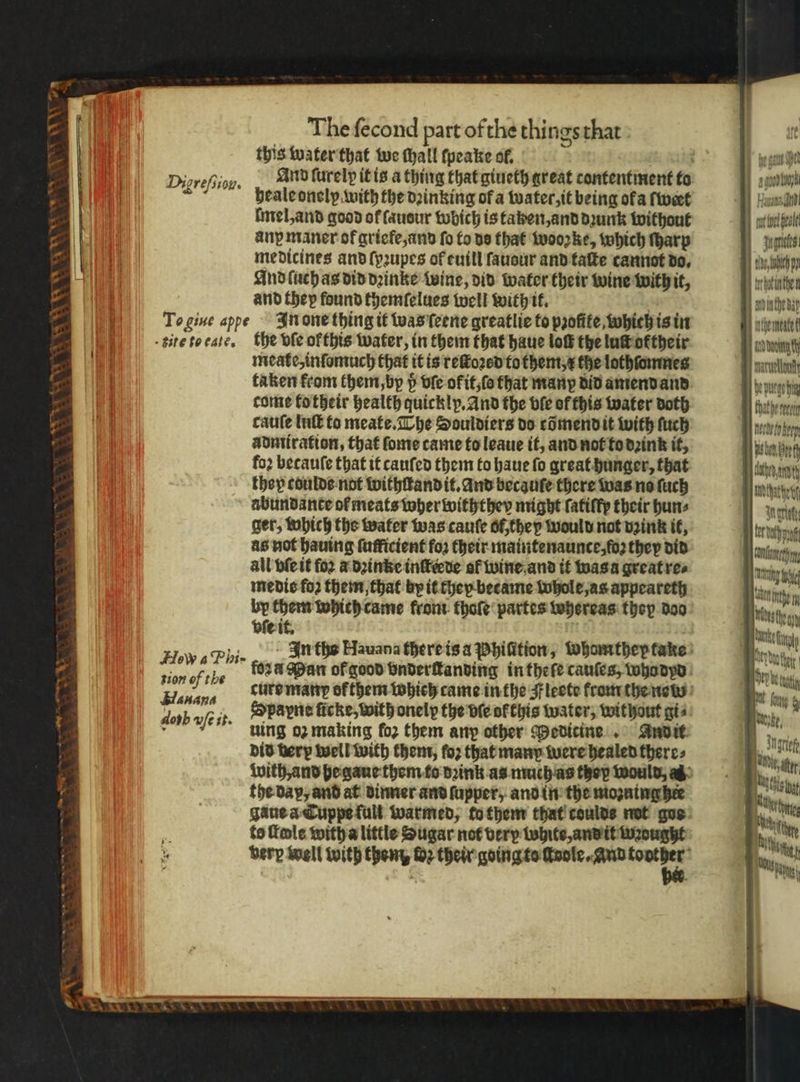 The ſecond part of the things that
this water that we ſhall ſpeake of.
Digreſsion.
And ſurely it is a thing that giueth great contentment to
heale onely with the drinking of a water, it being of a ſwéet
ſmel, and good of ſauour which is taken, and drunk without
any maner of griefe, and ſo to do that woorke, which ſharp
medicines and ſyrupes of euill ſauour and taſte cannot do.
And ſuch as did drinke wine, did water their wine with it,
and they found themſelues well with it.
To giue appe
tite to eate.
In one thing it was ſeene greatlie to profite, which is in
the vſe of this water, in them that haue loſt the luſt of their
meate, inſomuch that it is reſtored to them, & the lothſomnes
taken from them, by þͤ vſe of it, ſo that many did amend and
come to their health quickly. And the vſe of this water doth
cauſe luſt to meate. The Souldiers do cōmend it with ſuch
admiration, that ſome came to leaue it, and not to drink it,
for becauſe that it cauſed them to haue ſo great hunger, that
they coulde not withſtand it. And becauſe there was no ſuch
abundance of meats wherwith they might ſatiſfy their hun-
ger, which the water was cauſe of, they would not drink it,
as not hauing ſufficient for their maintenaunce, for they did
all vſe it for a drinke inſtéede of wine. and it was a great re-
medie for them, that by it they became whole, as appeareth
by them which came from thoſe partes whereas they doo
vſe it.
How a Phi-
tion of the
Hauana
doth vſe it.
In the Hauana there is a Phiſition, whom they take
for a Man of good vnderſtanding in theſe cauſes, who dyd
cure many of them which came in the Fleete from the new
Spayne ſicke, with onely the vſe of this water, without gi-
uing or making for them any other Medicine . And it
did very well with them, for that many were healed there-
with, and he gaue them to drink as much as they would, al
the day, and at dinner and ſupper, and in the morning hée
gaue a Cuppe full warmed, to them that coulde not goe
to ſtoole with a little Sugar not very white, and it wrought
very well with them, for their going to ſtoole. And to other
hée